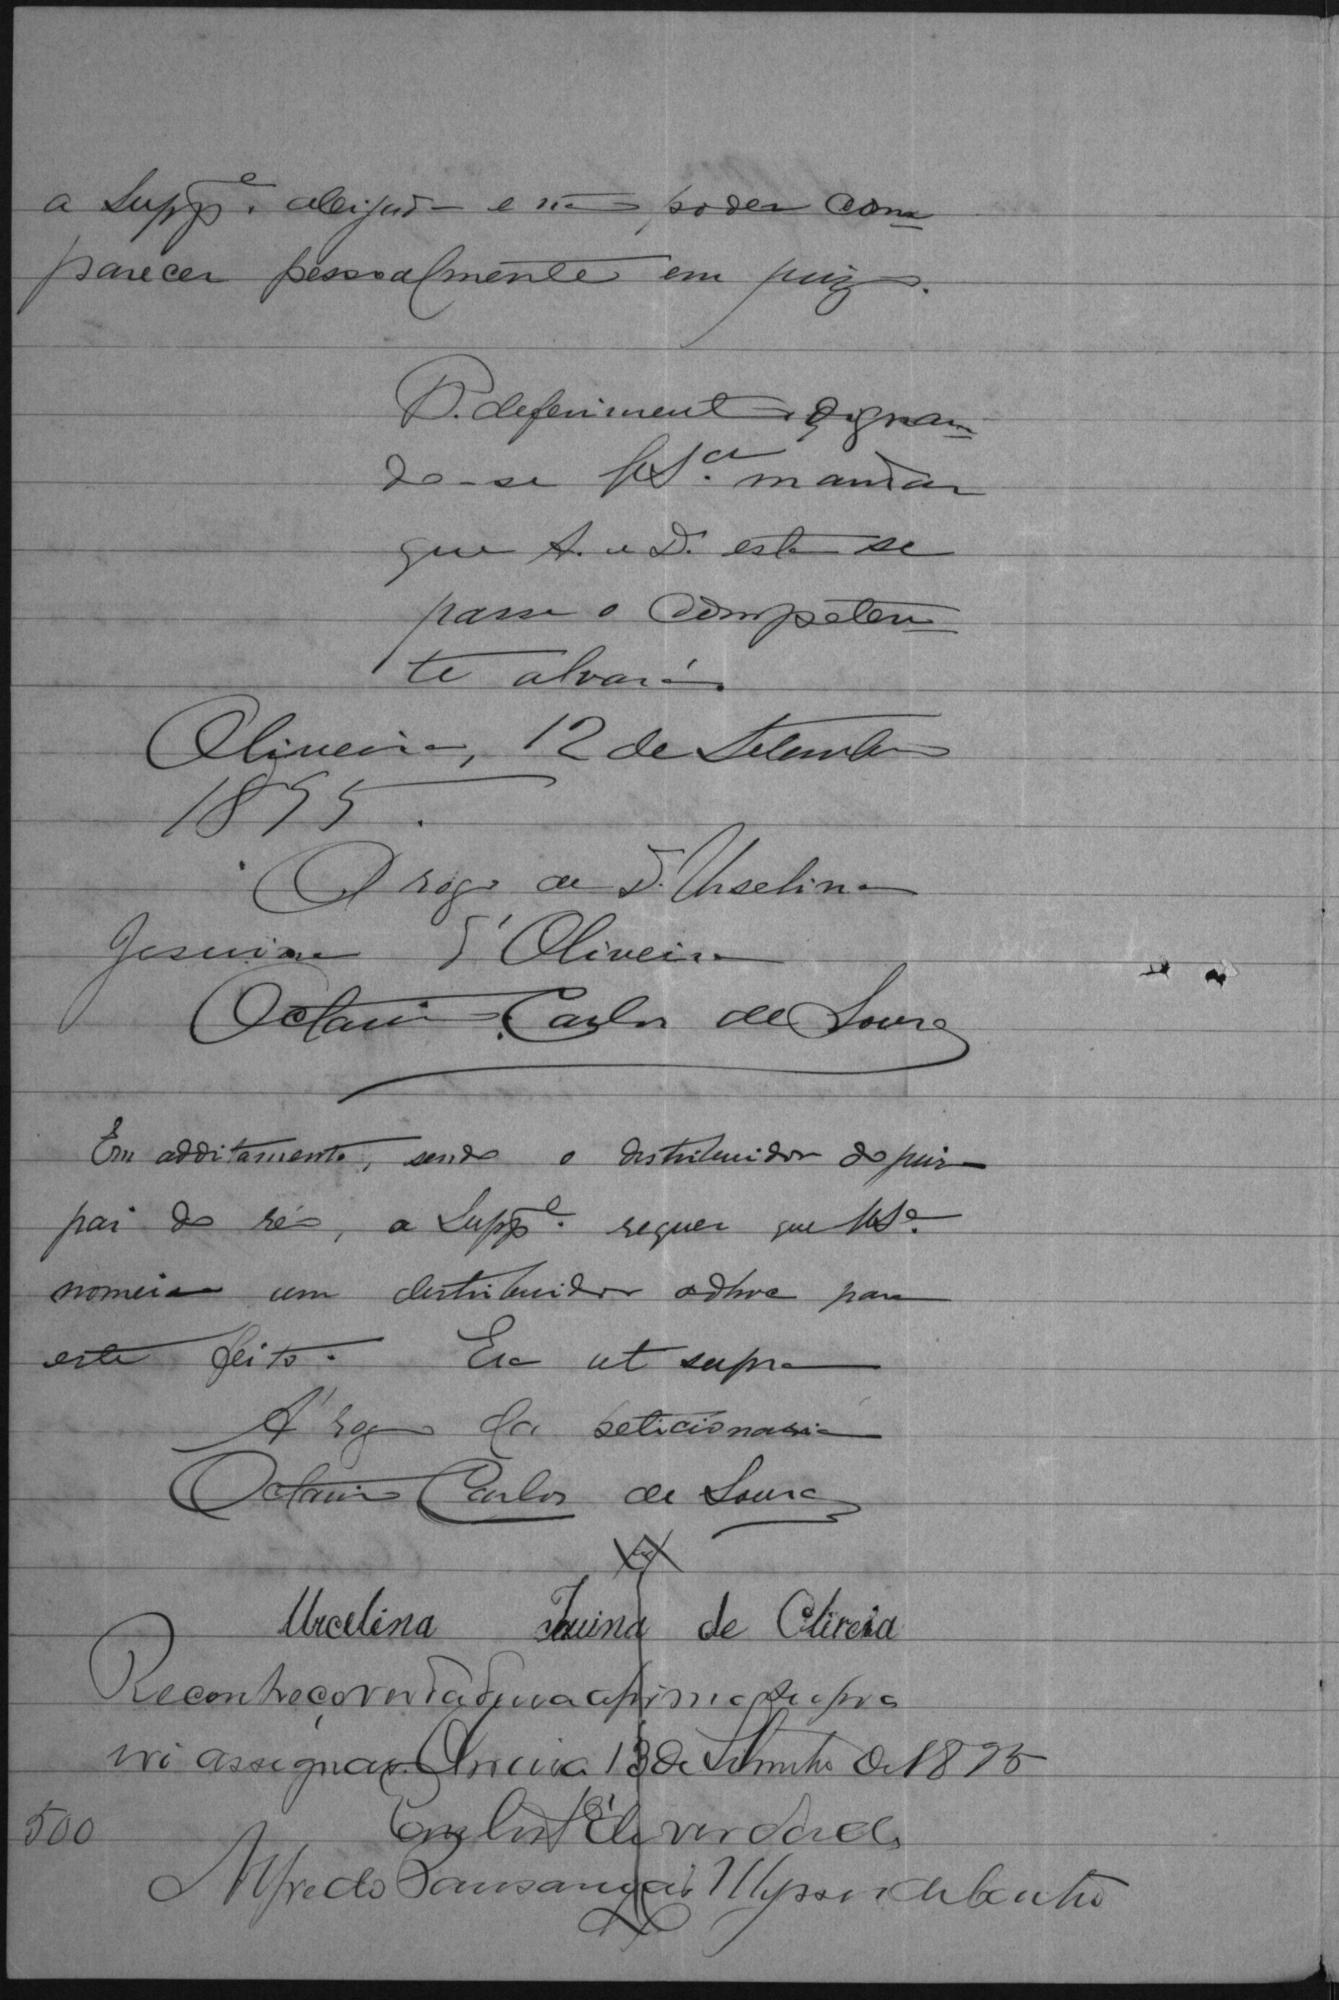 a Supp.e aleijada e não poder com
parecer pessoalmente em juizo.
P. deferimento, dignan
do-se V.S.a mandar
que A. e D. esta se
passe o competen
te alvará.
Oliveira, 12 de Setembro
1895.
A rogo de D. Urselina
Jesuina d'Oliveira
Octavio Carlos de Souza
Em additamento, sendo o distribuidor do juizo
pai do réo, a Supp.e requer que V.S.a
nomeie um distribuidor adhoc para
este feito. Era ut supra
A' rogo da peticionaria
Octavio Carlos de Souza
Urcelina Jsuina de Olireia
Reconheço verdadeira a firma supra
vi assignar. Oliveira 13 de Setembro de 1895
Em de verdade
500
Alfredo Ulysses de Castro